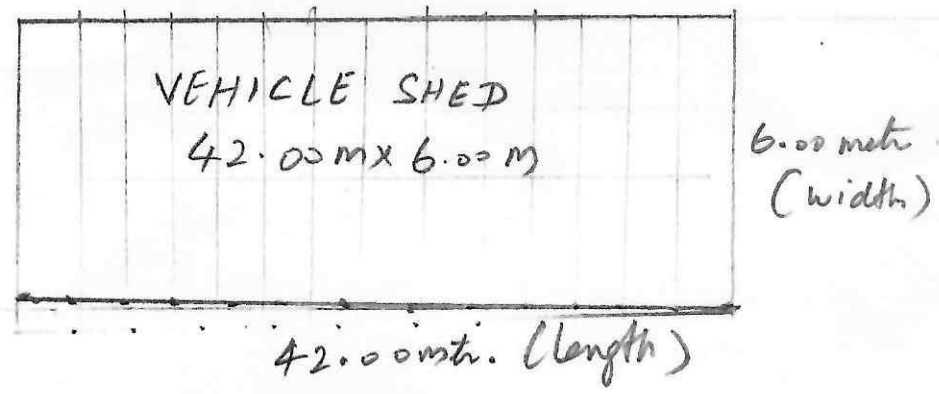 VEHICLE SHED
42.00 m x 6.00 m
6.00 metr.
(width)
42.00 mtr. (length)